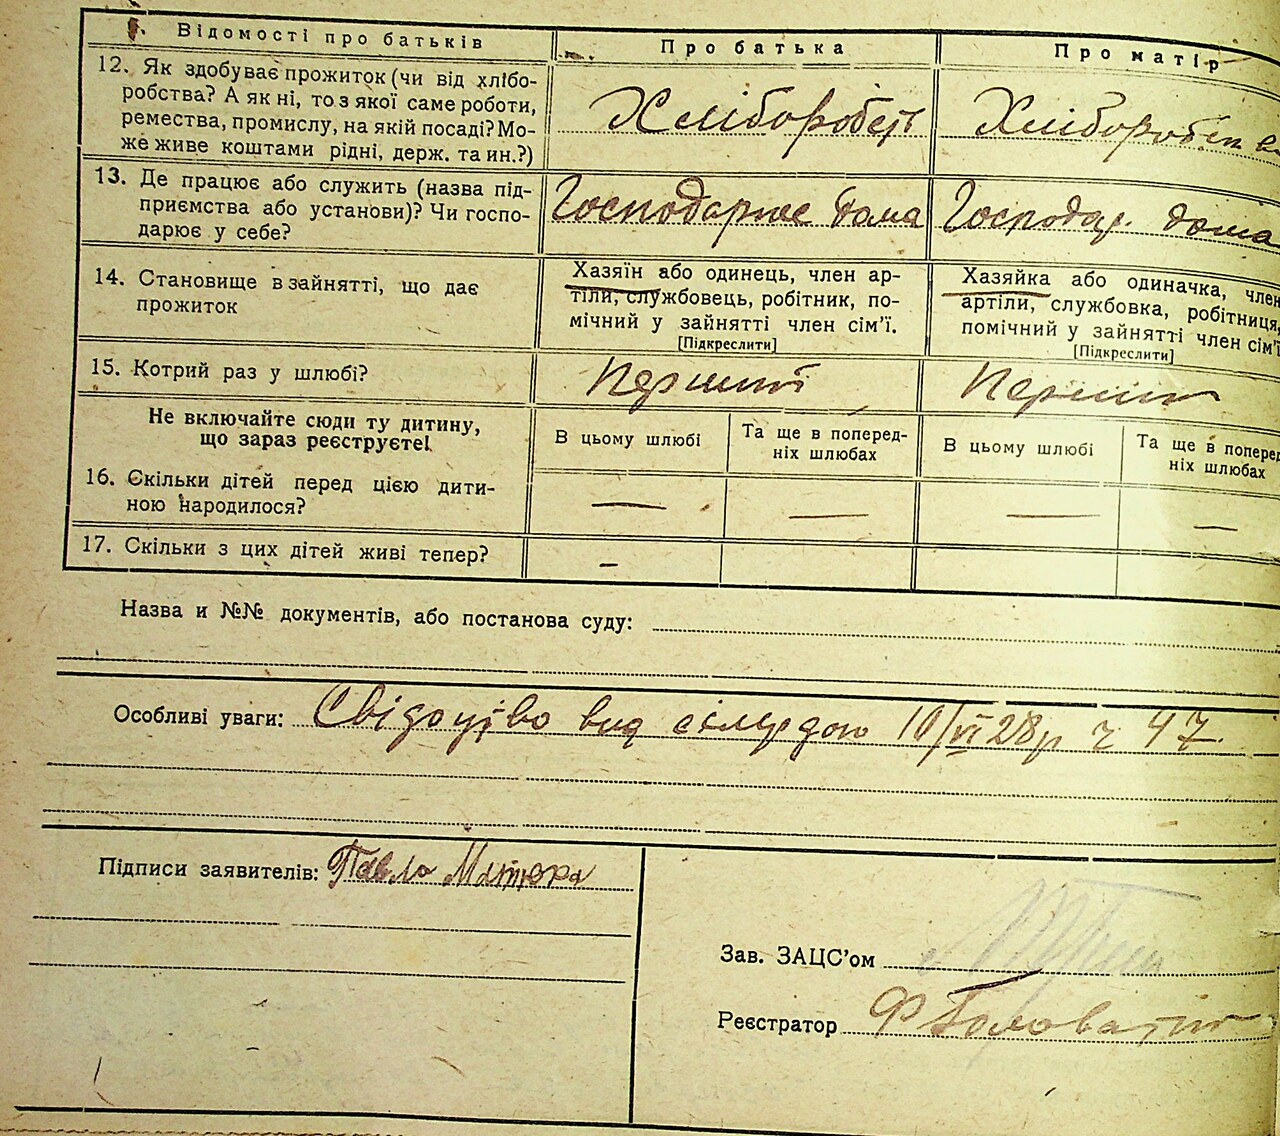 Відомості про батьків
Про батька
Про матір
12. Як здобуває прожиток (чи від хлібо-
робства? А як ні, то з якої саме роботи,
ремества, промислу, на якій посаді? Мо-
же живе коштами рідні, держ. та ин.?)
Хлібороб
Хлібороб
13. Де працює або служить (назва під-
приємства або установи)? Чи госпо-
дарює у себе?
Господарює дома
Господар. дома
14. Становище в зайнятті, що дає
прожиток
Хазяїн або одинець, член ар-
тіли, службовець, робітник, по-
мічний у зайнятті член сім'ї.
[Підкреслити]
Хазяйка або одиначка, член
артіли, службовка, робітниця,
помічний у зайнятті член сім'ї
[Підкреслити]
15. Котрий раз у шлюбі?
Перший
Перший
Не включайте сюди ту дитину,
що зараз реєструєте!
В цьому шлюбі
Та ще в поперед-
ніх шлюбах
В цьому шлюбі
Та ще в поперед
ніх шлюбах
16. Скільки дітей перед цією дити-
ною народилося?
— — — —
17. Скільки з цих дітей живі тепер?
–
Назва и №№ документів, або постанова суду:
Особливі уваги: Свідоцтво вид 10/VI 28р ч 47.
Підписи заявителів: Павло Матюха
Зав. ЗАЦС'ом
Реєстратор Ф Головатий